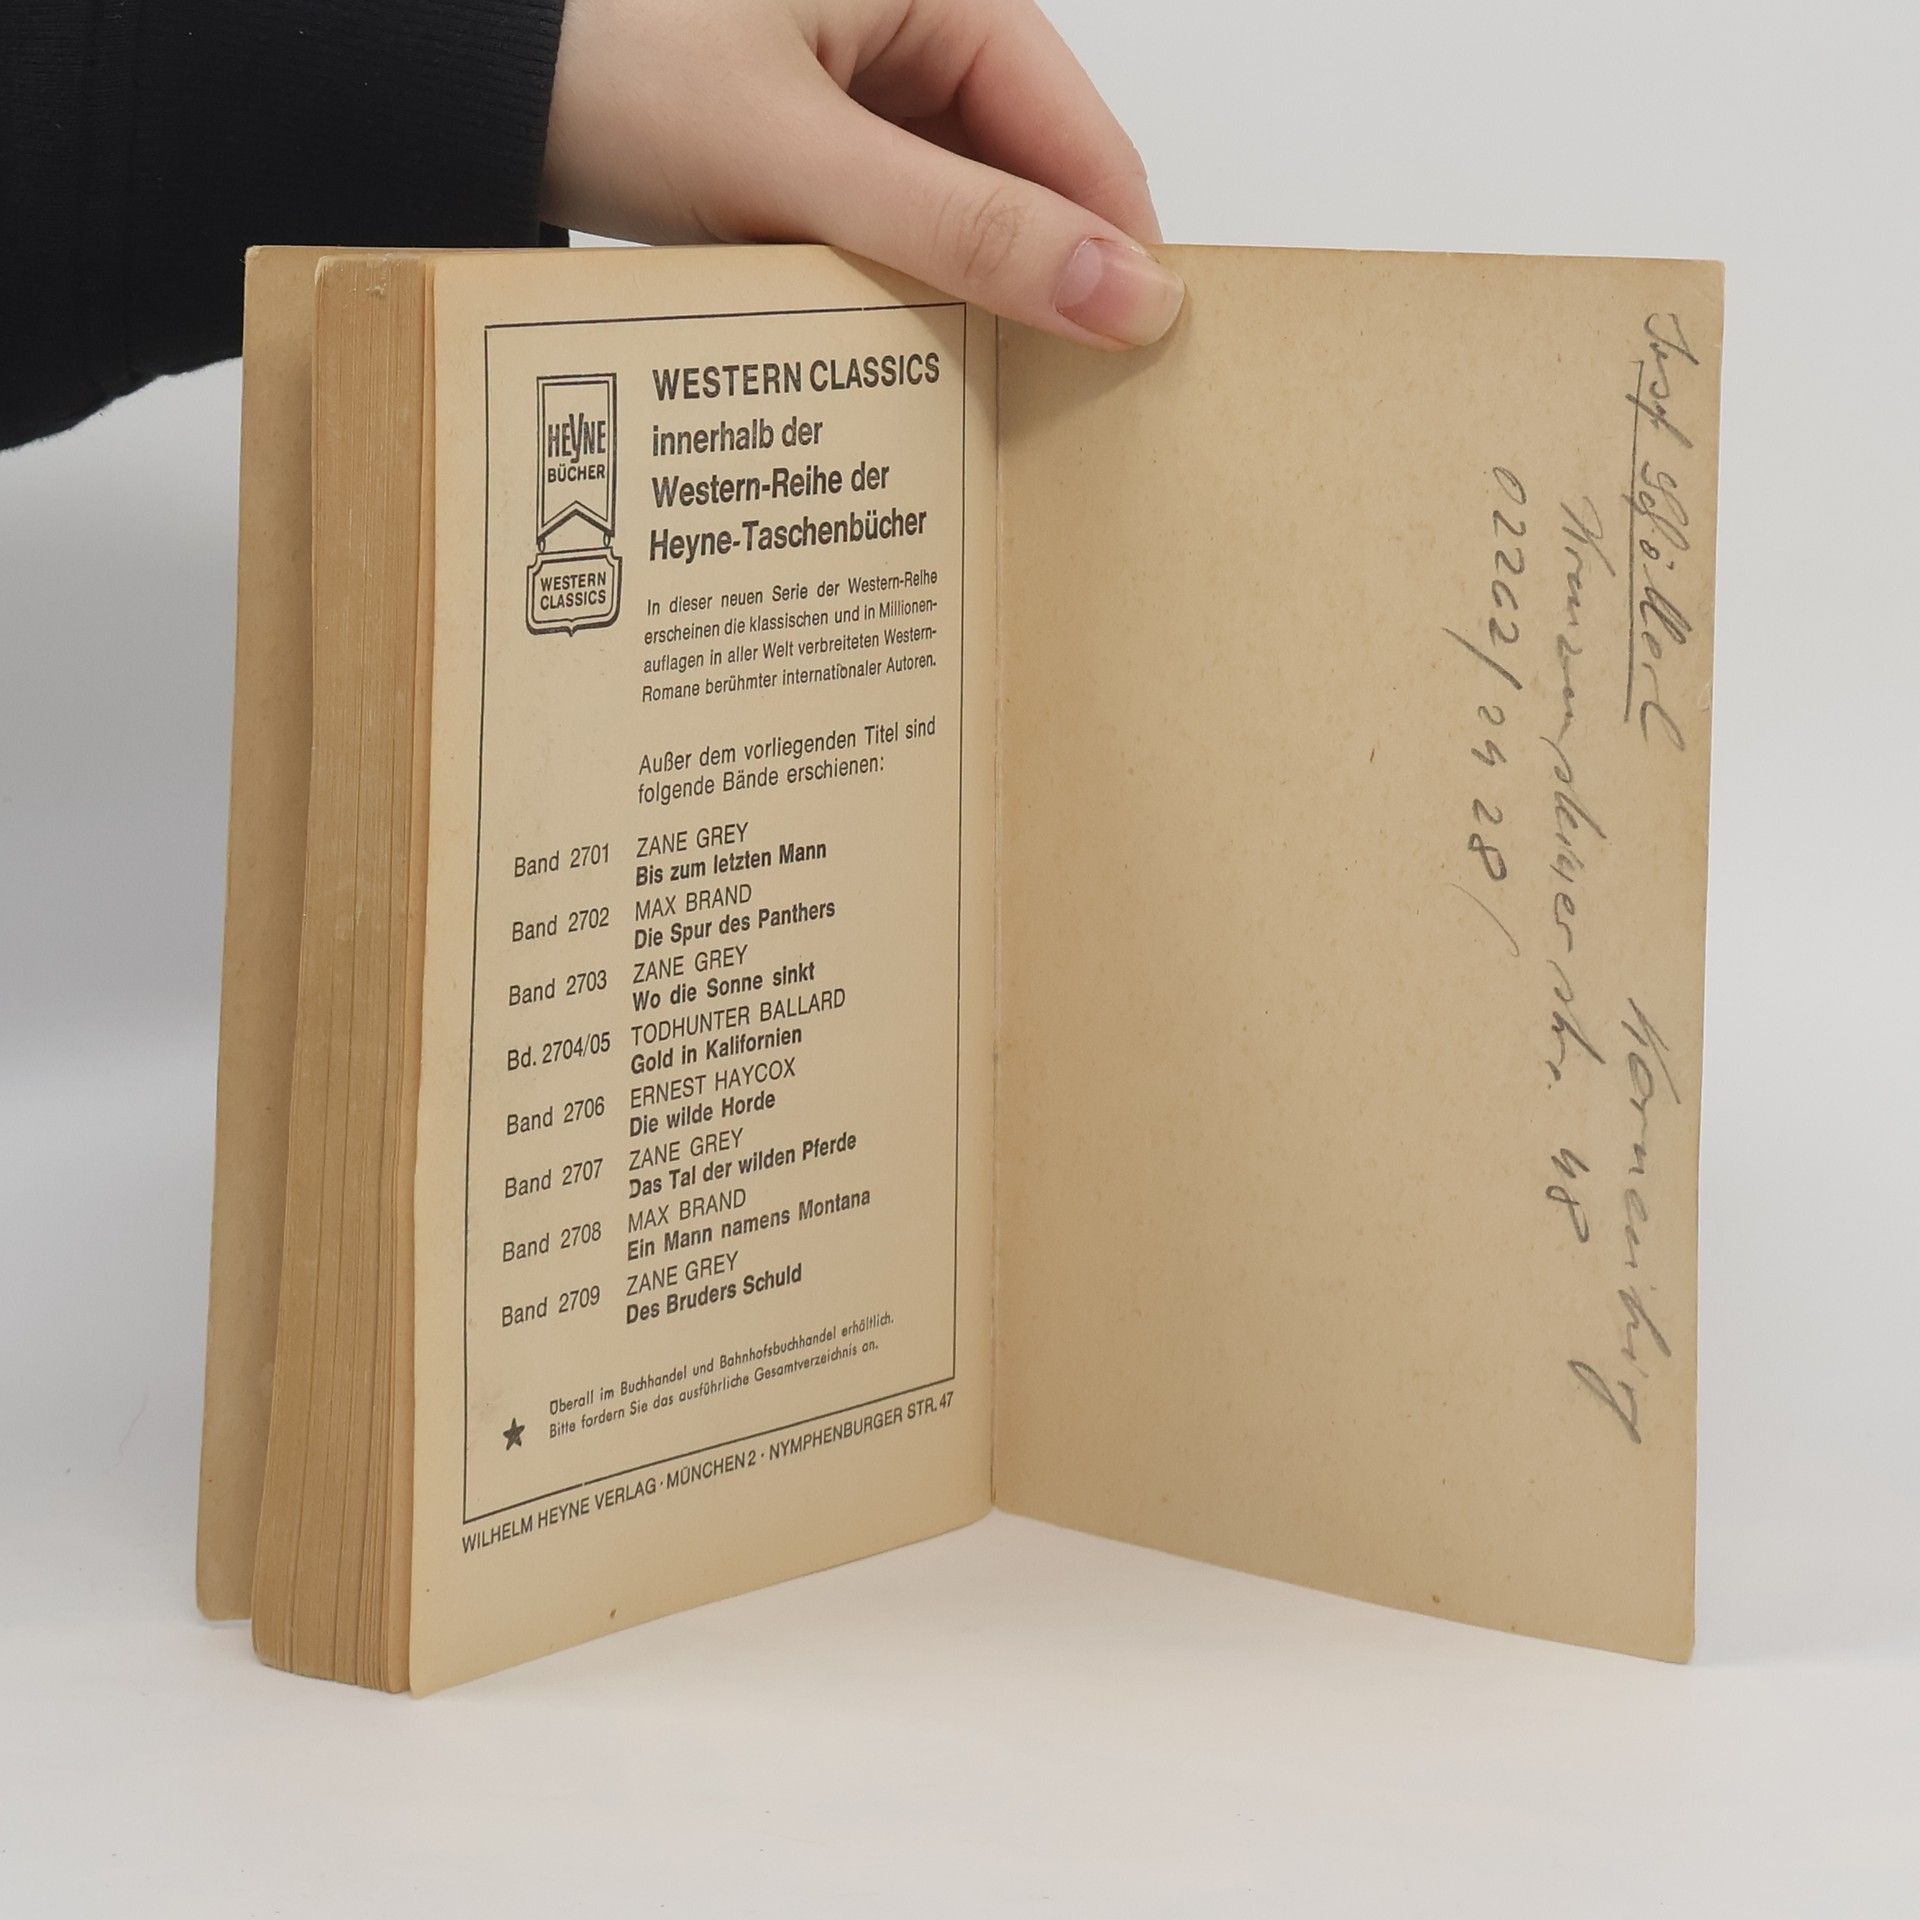 HEYNE
BÜCHER
WESTERN
CLASSICS
WESTERN CLASSICS
innerhalb der
Western-Reihe der
Heyne-Taschenbücher
In dieser neuen Serie der Western-Reihe
erscheinen die klassischen und in Millionen-
auflagen in aller Welt verbreiteten Western-
Romane berühmter internationaler Autoren.
Außer dem vorliegenden Titel sind
folgende Bände erschienen:
Band 2701 ZANE GREY
Bis zum letzten Mann
Band 2702 MAX BRAND
Die Spur des Panthers
Band 2703 ZANE GREY
Wo die Sonne sinkt
Bd. 2704/05 TODHUNTER BALLARD
Gold in Kalifornien
Band 2706 ERNEST HAYCOX
Die wilde Horde
Band 2707 ZANE GREY
Das Tal der wilden Pferde
Band 2708 MAX BRAND
Ein Mann namens Montana
Band 2709 ZANE GREY
Des Bruders Schuld
Überall im Buchhandel und Bahnhofsbuchhandel erhältlich.
Bitte fordern Sie das ausführliche Gesamtverzeichnis an.
WILHELM HEYNE VERLAG · MÜNCHEN 2 · NYMPHENBURGER STR. 47
Korneuburg
48
02262/24 28/